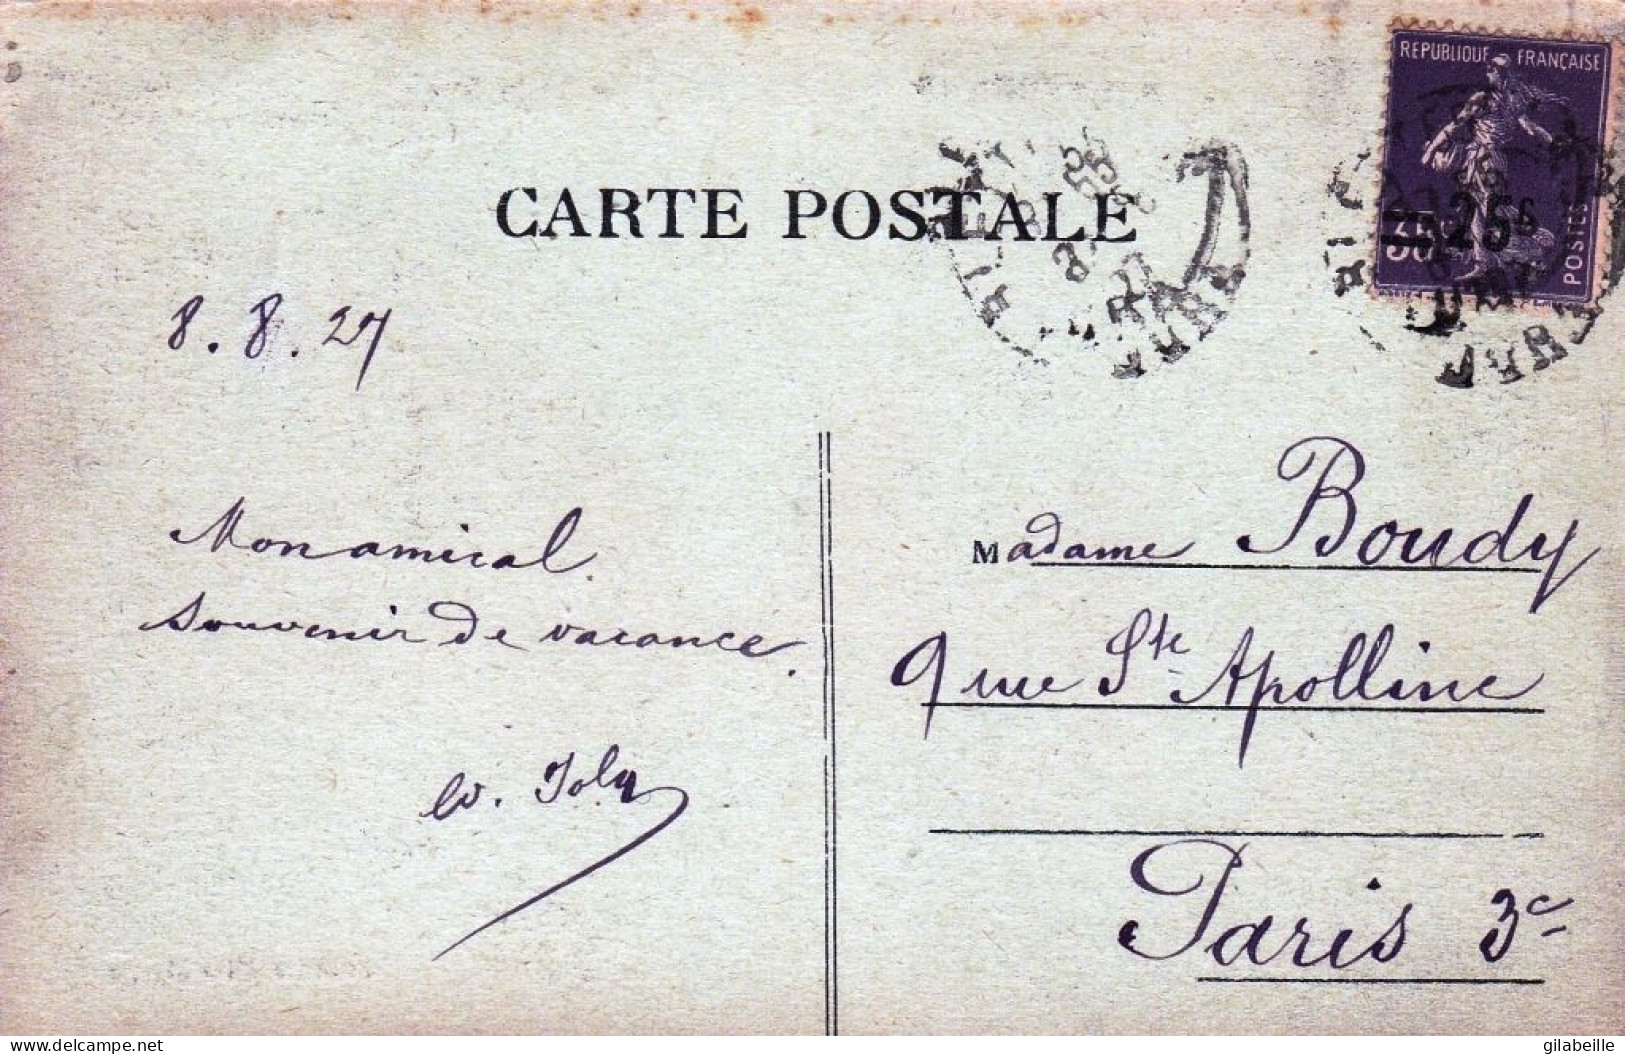 REPUBLIQUE FRANÇAISE
35
25c
POSTES
CARTE POSTALE
8.8.27
Mon amical
souvenir de vacance.
Joly
Madame Boudy
9 rue Ste Apolline
Paris 3e
delcampe.net
gilabeille